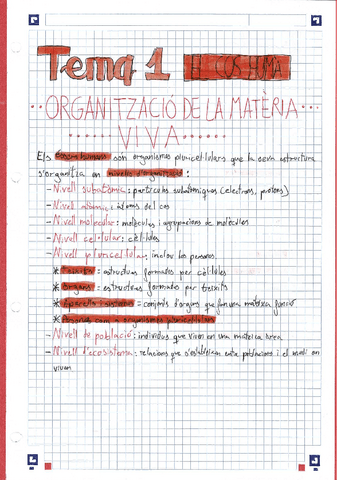 Tema 1 EL COS HUMÀ
ORGANITZACIÓ DE LA MATÈRIA
VIVA
Els éssers humans son organismes pluricel·lulars que la seva estructura
s'organitza en nivells d'organització:
- Nivell subatòmic: partícules subatòmiques (electrons, protons)
- Nivell atòmic: àtoms del cos
- Nivell molecular: molècules i agrupacions de molècules
- Nivell cel·lular: cèl·lules
- Nivell pluricel·lular: inclou les persones.
* Teixits: estructures formades per cèl·lules
* Òrgans: estructures formades per teixits
* Aparells i sistemes: conjunts d'òrgans que fan una mateixa funció
* Persones com a organismes pluricel·lulars
- Nivell de població: individus que viuen en una mateixa àrea
- Nivell d'ecosistema: relacions que s'estableixen entre poblacions i el medi on
viuen